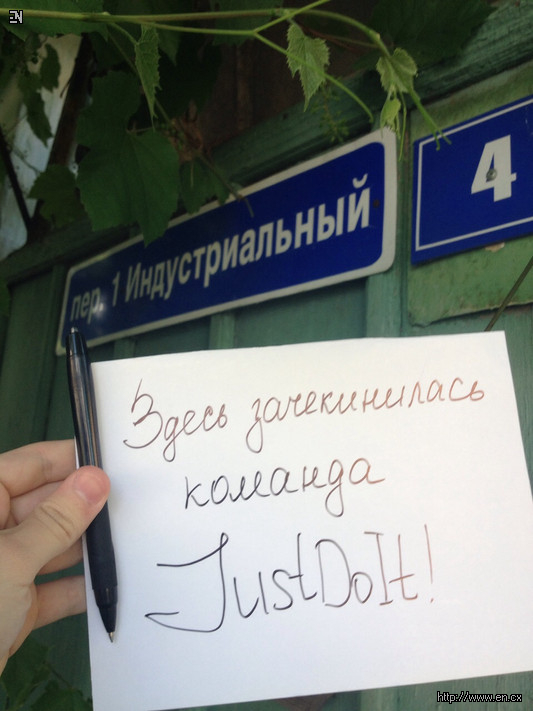 EN
пер. 1 Индустриальный
4
Здесь зачекинилась
команда
JustDoIt!
http://www.en.cx